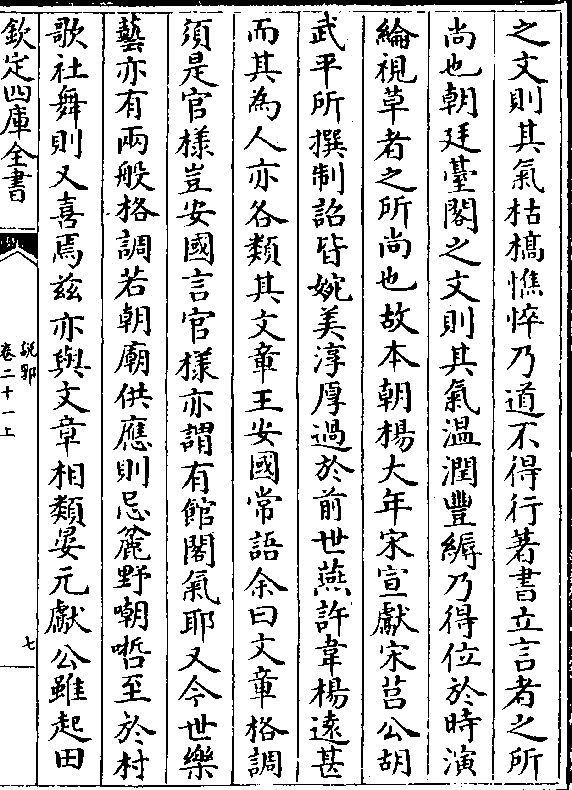 之文則其氣枯槁憔悴乃道不得行著書立言者之所
尚也朝廷臺閣之文則其氣溫潤豐縟乃得位於時演
綸視草者之所尚也故本朝楊大年宋宣獻宋莒公胡
武平所撰制詔皆婉美淳厚過於前世燕許韋楊逺甚
而其為人亦各類其文章王安國常語余曰文章格調
須是官様豈安國言官様亦謂有館閣氣耶又今世樂
藝亦有兩般格調若朝廟供應則忌麄野嘲哳至於村
歌社舞則又喜焉兹亦與文章相類晏元獻公雖起田
欽定四庫全書
說郛
卷二十一上
七